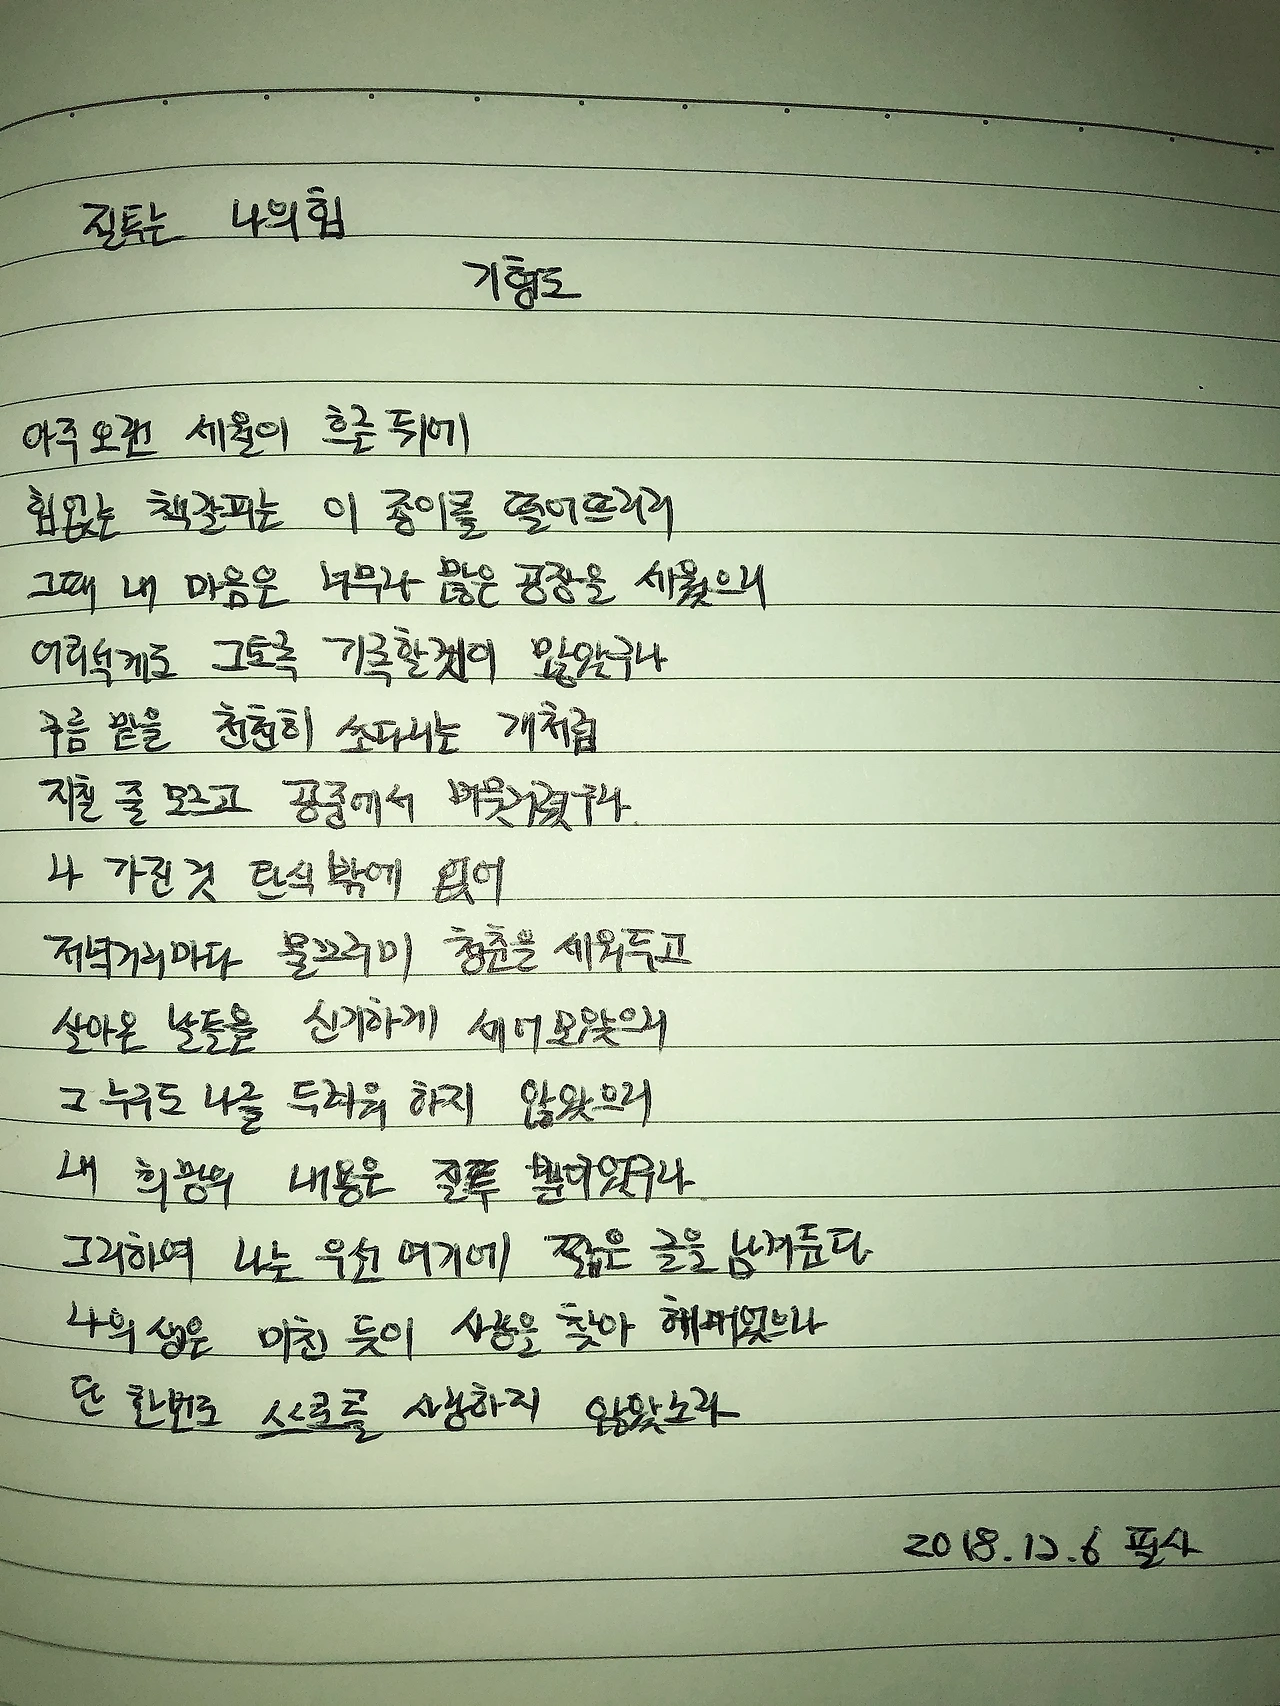 질투는 나의힘
기형도
아주오랜 세월이 흐른 뒤에
힘없는 책갈피는 이 종이를 떨어뜨리리
그때 내 마음은 너무나 많은 공장을 세웠으니
어리석게도 그토록 기록할것이 많았구나
구름 밑을 천천히 쏘다니는 개처럼
지칠 줄 모르고 공중에서 머뭇거렸구나
나 가진것 탄식밖에 없어
저녁거리마다 물끄러미 청춘을 세워두고
살아온 날들을 신기하게 세어보았으니
그 누구도 나를 두려워 하지 않았으니
내 희망의 내용은 질투 뿐이었구나
그리하여 나는 우선 여기에 짧은 글을 남겨둔다
나의 생은 미친 듯이 사랑을 찾아 헤매었으나
단 한번도 스스로를 사랑하지 않았노라
2018.12.6 필사